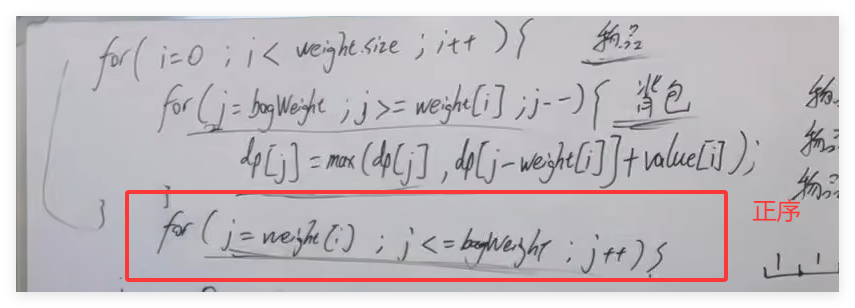 for( i=0 ; i< weight.size ; i++ ){ 物品
for( j=bagWeight ; j>= weight[i] ; j--){ 背包
dp[j] = max(dp[j] , dp[j-weight[i]]+value[i]);
}
}
for( j=weight(i) ; j<=bagWeight ; j++){
正序
物
物品
物品